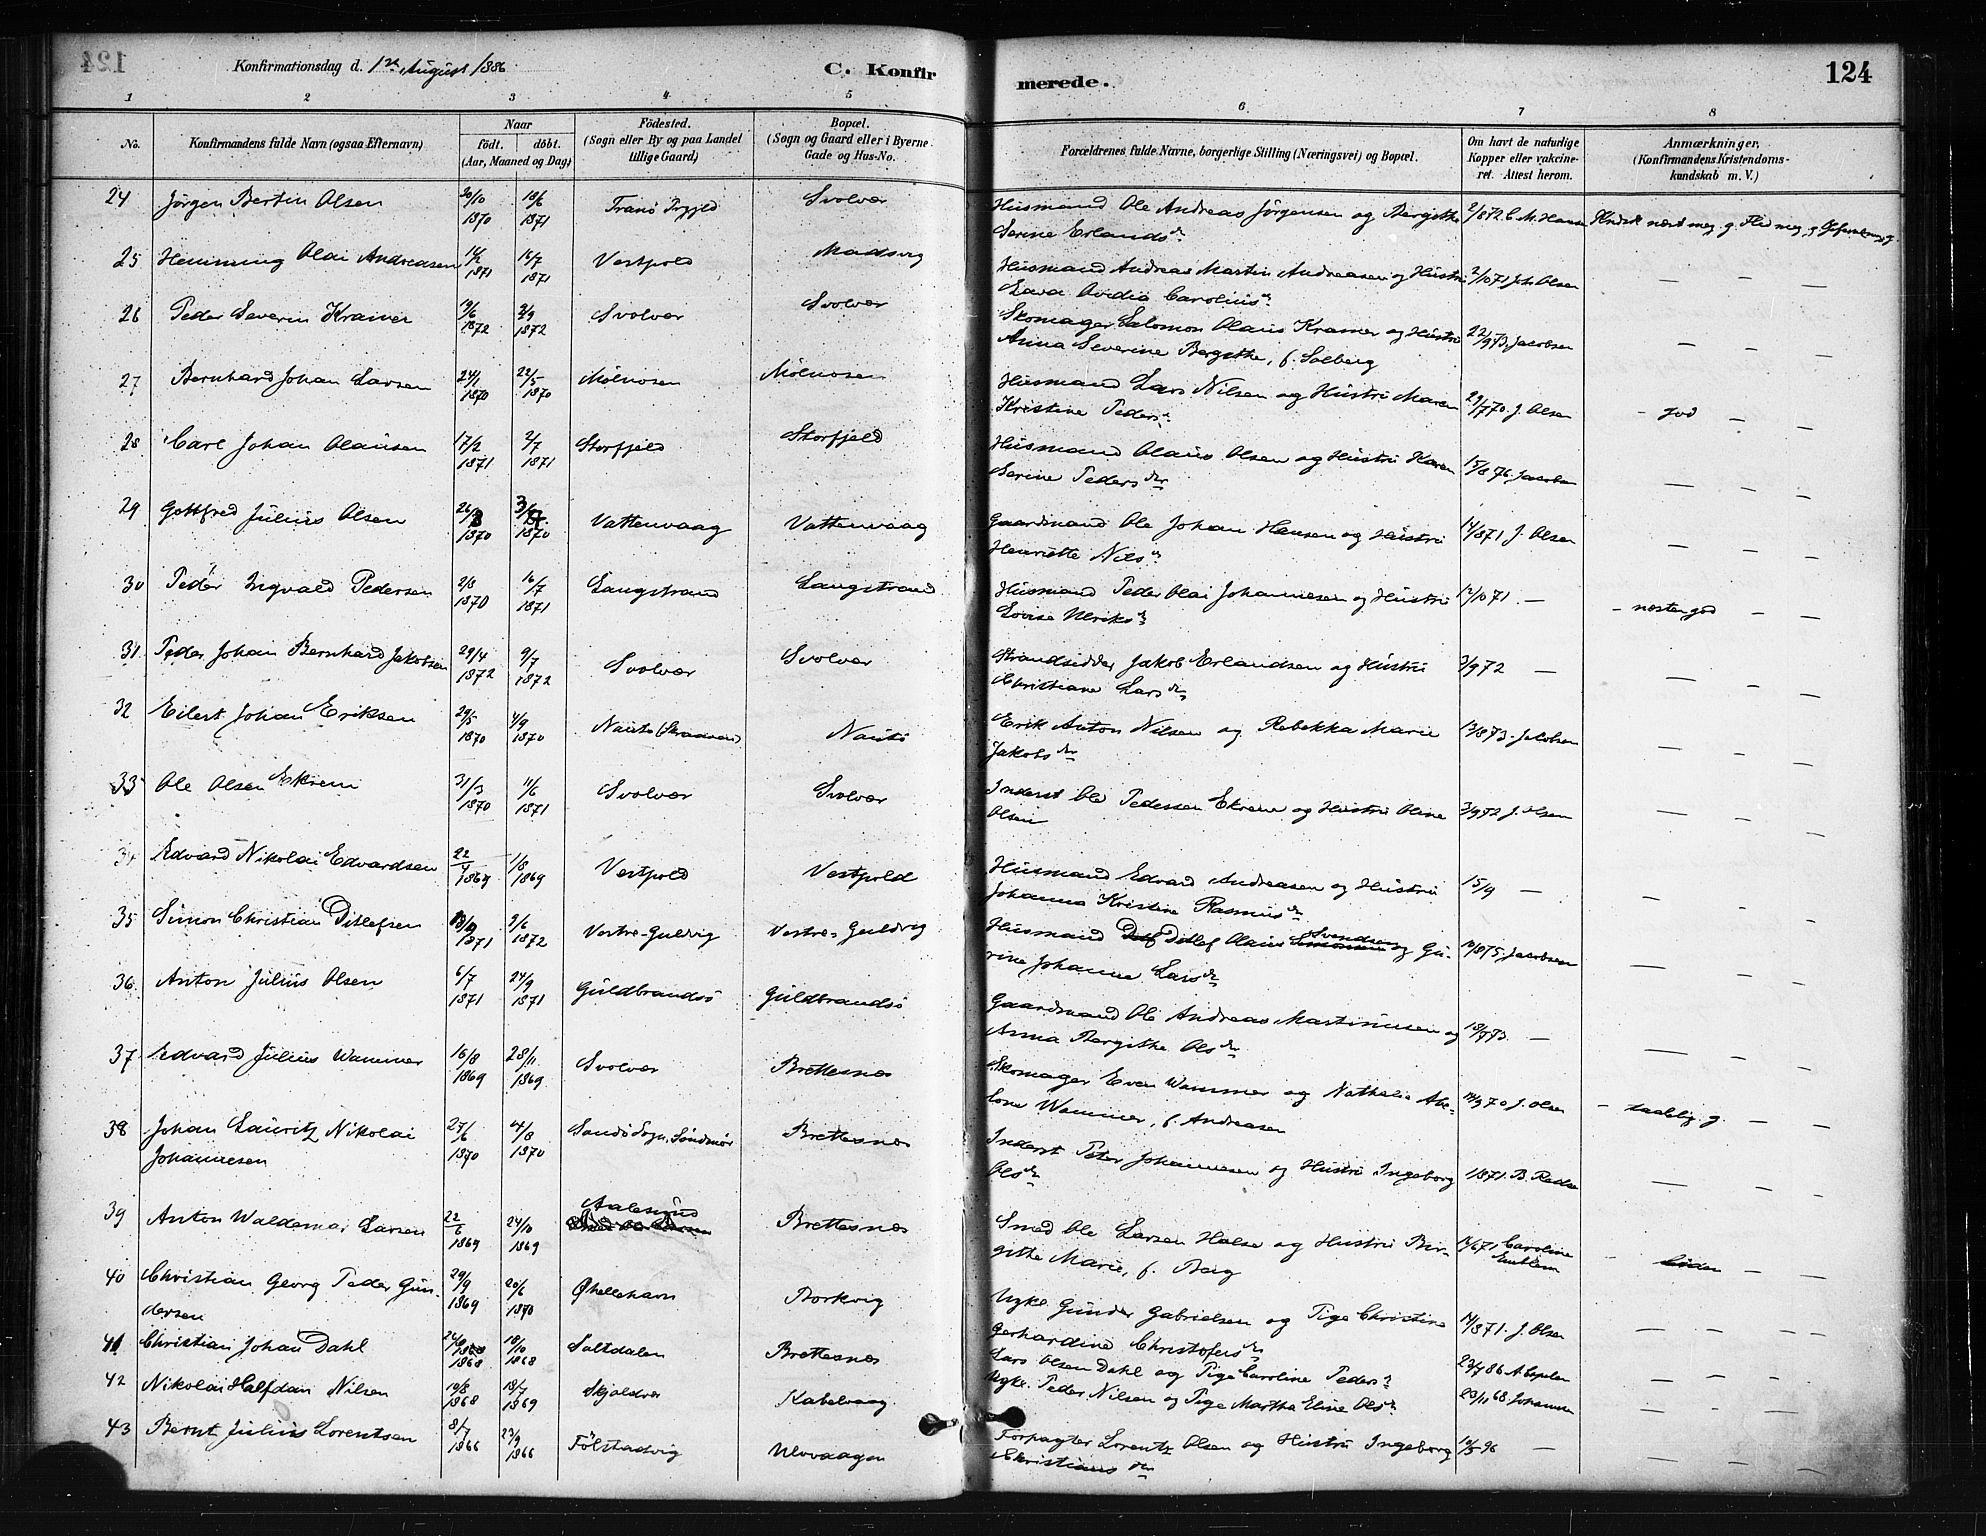 Konfirmationsdag d. 1ste August 1886
C. Konfirmerede.
124
1 2 3 4 5 6 7 8
No.
Konfirmandens fulde Navn (ogsaa Efternavn)
Naar
födt. döbt.
(Aar, Maaned og Dag)
Födested.
(Sogn eller By og paa Landet
tillige Gaard)
Bopæl.
(Sogn og Gaard eller i Byerne
Gade og Hus-No.
Forældrenes fulde Navne, borgerlige Stilling (Næringsvei) og Bopæl.
Om havt de naturlige
Kopper eller vakcine-
ret. Attest herom.
Anmærkninger,
(Konfirmandens Kristendoms-
kundskab m. V.)
24 Jörgen Bertin Olsen 20/10 1870 18/6 1871 Tranö Svolvær Husmand Ole Andreas Jörgensen og Bergithe
Serine Erlandsdr
25 Hemming Olai Andreasen 1871 16/7 1871 Vestpold Madsvig Husmand Andreas Martin Andreasen og Hustru 2/10 71 Olsen — — —
Lava Ovidia Carolius
26 Peder Severin Kramer 19/6 1872 2/9 1872 Svolvær Svolvær Skomager Salomon Olaus Kramer og Hustru 22/9 73. Jacobsen — — —
Anna Severine Bergithe, f. Solberg
27 Bernhard Johan Larsen 24/1 1870 22/5 1870 Mölnosen Mölnosen Husmand Lars Nilsen og Hustru Maren 29/7 70. J. Olsen - god — —
Kristine Pedersdr
28 Carl Johan Olausen 17/2 1871 2/7 1871 Storfjeld Storfjeld Husmand Olaus Olsen og Hustru Karen 15/8 76. Jacobsen — — —
Serine Pedersdr
29 Gottfred Julius Olsen 26/3 1870 3/4 1870 Vattenvaag Vattenvaag Gaardmand Ole Johan Hansen og Hustru 14/8 71 J. Olsen — — —
Henriette Nilsdr
30 Peder Ingvald Pedersen 2/8 1870 16/7 1871 Langstrand Langstrand Husmand Peder Olai Johannesen og Hustru 12/10 71. — - næsten god — —
Lovise Ulriksdr
31 Peder Johan Bernhard Jakobsen 29/4 1872 9/7 1872 Svolvær Svolvær Strandsidder Jakob Erlandsen og Hustru 3/9 72 — — — —
Christiane Larsdr
32 Eilert Johan Eriksen 29/5 1870 4/9 1870 Nautö Nautö Erik Anton Nilsen og Rebekka Marie 13/8 73. Jacobsen — — —
Jakobsdr
33 Ole Olsen Ekrem 31/3 1870 11/6 1871 Svolvær Svolvær Inderst Ole Pedersen Ekrem og Hustru Oline 3/9 72 J. Olsen — — —
Olsen
34 Edvard Nikolai Edvardsen 22/4 1869 1/8 1869 Vestpold Vestpold Husmand Edvard Andreasen og Hustru 15/9 — — — —
Johanna Kristine Rasmusdr
35 Simon Christian Ditlefsen 1871 9/6 1872 Vestre-Guldvig Vestre-Guldvig Husmand Ditlef Olaus Simonsen Svendsen og Gu- 10/8 75. Jacobsen — — —
rine Johanne Larsdr
36 Anton Julius Olsen 6/7 1871 24/9 1871 Guldbrandsö Guldbrandsö Gaardmand Ole Andreas Martinusen og — — — —
Anna Bergithe Olsdr
37 Edvard Julius Wammer 16/8 1869 28/11 1869 Svolvær Brettesnæs Skomager Even Wammer og Nathalie Abe- 70 J. Olsen - taalelig g. — —
lone Wammer, f. Andreasen
38 Johan Lauritz Nikolai 27/6 1870 4/8 1870 Sandö Sogn, Söndmör Brettesnæs Inderst Peter Johannesen og Hustru Ingeborg — — —
Johannesen Olsdr
39 Anton Waldemar Larsen 22/6 1869 24/10 1869 Aalesund Brettesnæs Smed Ole Larsen Halse og Hustru Bir- 14/6 71 Caroline
githe Marie, f. Berg Emblem - liden — —
40 Christian Georg Peder Gun- 29/9 1869 20/6 1870 Øhellehavn Borkvig Ugke. Gunder Gabrielsen og Pige Christine 14/8 71. J. Olsen — — —
dersen Gerhardine Christofersdr
41 Christian Johan Dahl 24/9 1868 18/10 1868 Saltdalen Brettesnæs Lars Olsen Dahl og Pige Caroline Pedersdr 23/7 86 — — —
42 Nikolai Halfdan Nilsen 10/8 1868 18/7 1869 Skjoldvær Kabelvaag Ugke. Peder Nilsen og Pige Martha Eline Olsdr 23/11 68. Johannsen — — —
43 Bernt Julius Lorentsen 8/7 1866 23/9 1866 Fölstadvig Ulvvaagen Forpagter Lorentz Olsen og Hustru Ingeborg — — — —
Christiansdr